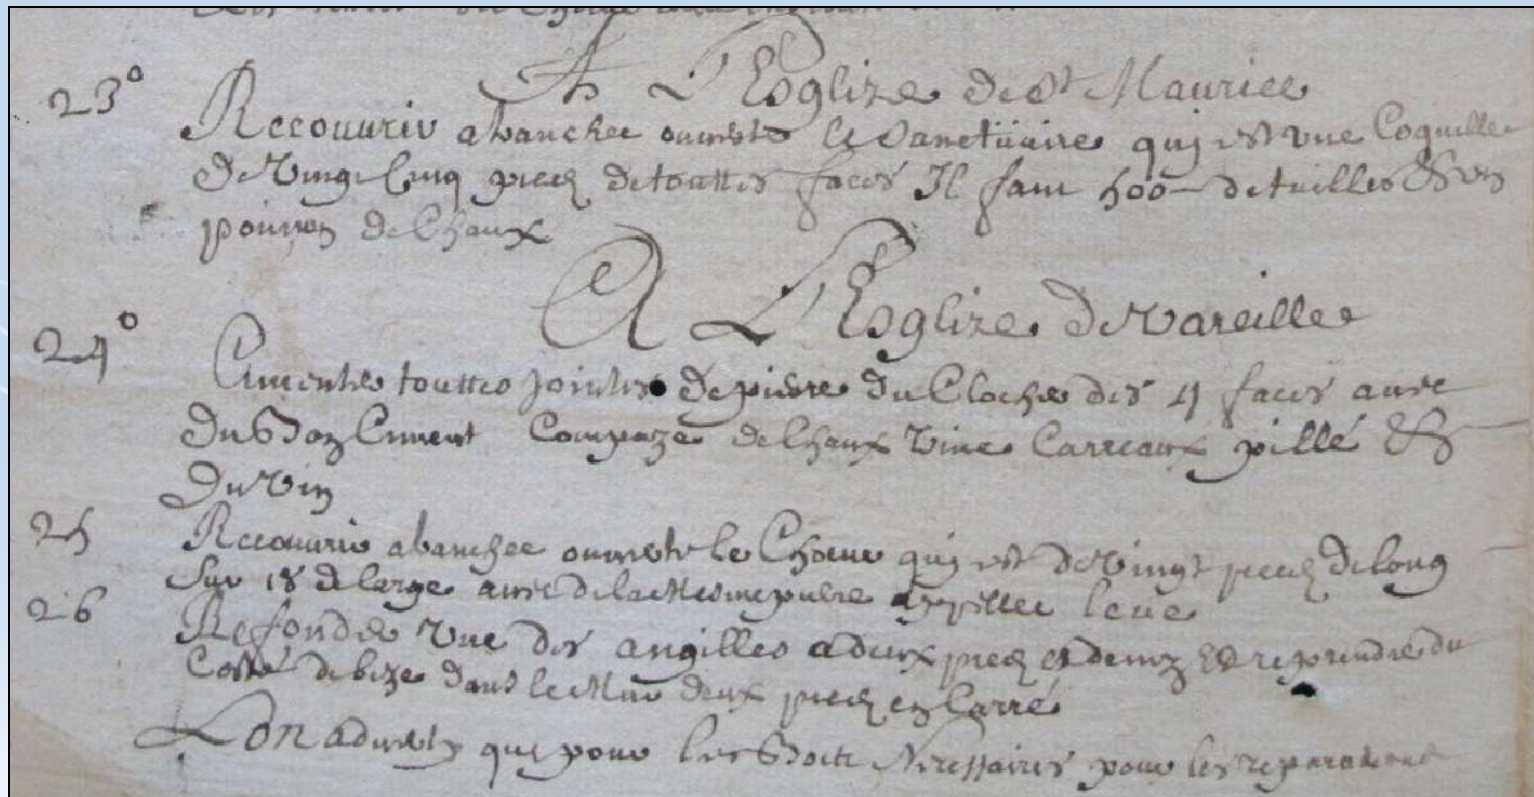 A L'Esglize de St Maurice
23° Recouurir a banchee ouuerte le Sanctuaire quj est vne Coquille
De Vingt Cinq pieds de touttes faces Il faut 500 de tuilles & vn
poinson de Chaux
A L'Esglize de Vareille
24° Cimenter touttes jointes de pierre du Clocher des 4 faces auec
Du Bon Ciment Compozé de Chaux Viue Carreaux pillé &
Du Vin
25 Recouurir a banchee ouuerte le Choeur quj est de Vingt pieds de long
Sur 18 de large auec de la mesme pierre appellee leue
26 Refonder Vne des angilles a deux pieds et demy & reprendre du
Costé de bize dans le Mur deux pieds en Carré
L'on aduertj que pour les Bois Necessaires pour les reparations